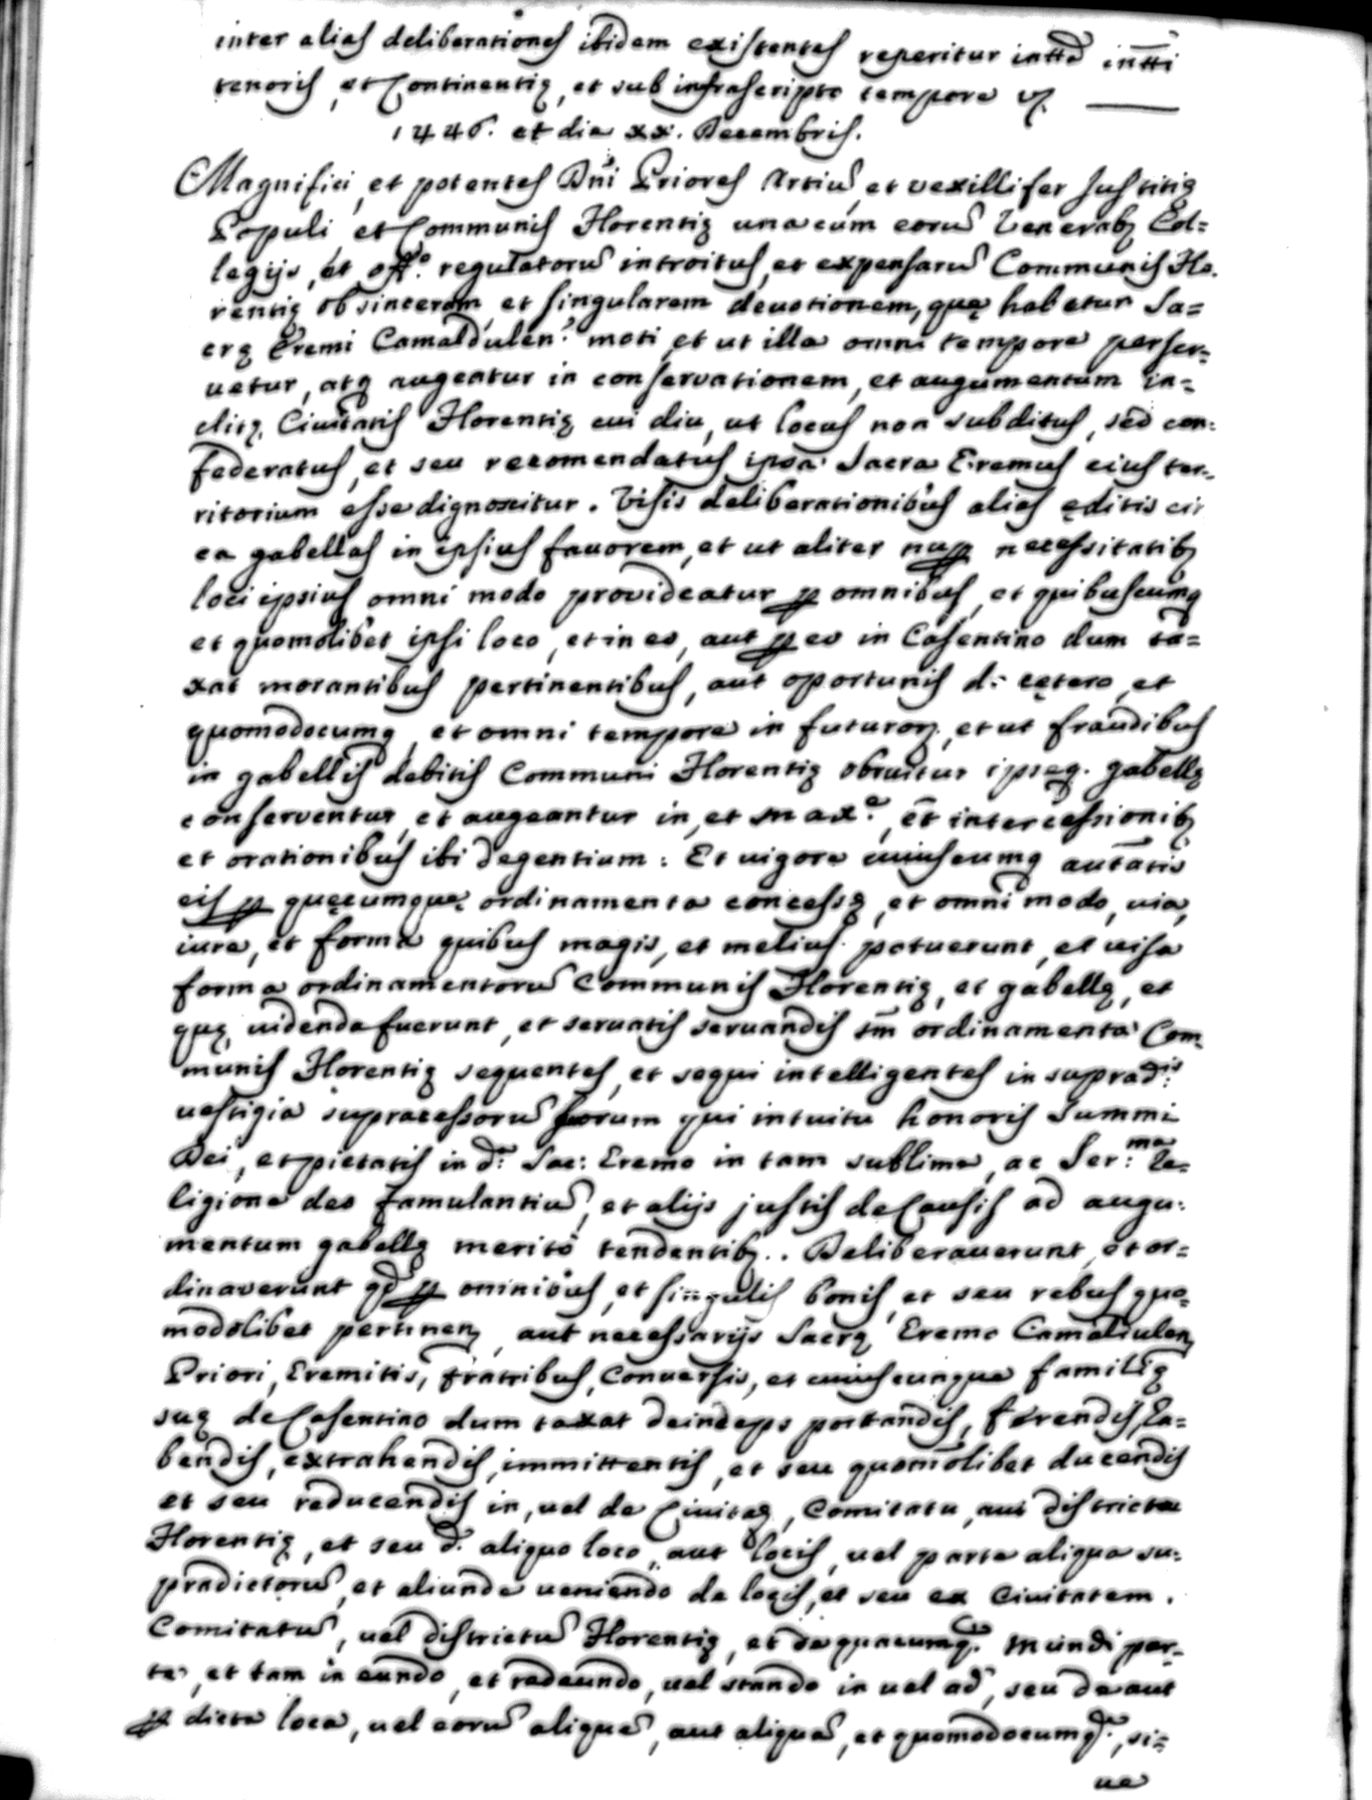 inter alias deliberationes ibidem existentes reperitur inttã inttĩ
tenoris, et Continentię, et sub infrascripto tempore vz.
1446. et die xx. Decembris.
Magnifici, et potentes Dñi Priores Artiũ, et vexillifer Justitię
Populi, et Communis Florentię una cum eorũ Venerabꝫ Col=
legijs, et offo. regulatorũ introitus, et expensarũ Communis Flo.
rentię ob sinceram, et singularem devotionem, quę habetur Sa=
crę Eremi Camaldulen: moti, et ut illa omni tempore perser=
uetur, atqꝫ augeatur in conservationem, et augumentum in=
clitę Ciuitatis Florentię cui diu, ut locus non subditus, sed con:
federatus, et seu recomendatus ipsa Sacra Eremus eius ter=
ritorium esse dignoscitur. Visis deliberationibus alias ęditis cir
ca gabellas in ipsius fauorem, et ut aliter nuꝑ necessitatibꝫ
loci ipsius omni modo provideatur ꝑ omnibus, et quibuscumqꝫ
et quomolibet ipsi loco, et in eo, aut ꝑ eo in Casentino dum ta=
xat morantibus pertinentibus, aut oportunis d: cętero, et
quomodocumqꝫ, et omni tempore in futurorꝫ, et ut fraudibus
in gabellis debitis Communi Florentię obvuitur ipseqꝫ. gabellę
conserventur, et augeantur in, et maxe., et̃ intercessionibꝫ
et orationibus ibi degentium: Et uigore cuiuscumqꝫ autãtis
eis ꝑ quęcumquę ordinamenta concessę, et omni modo, uia,
iure, et forma quibus magis, et melius potuerunt, et uisa
forma ordinamentorũ Communis Florentię, et gabellę, et
quę uidenda fuerunt, et seruatis seruandis tm̃ ordinamenta Com=
munis Florentię sequentes, et sequi intelligentes in supradis:
uestigia supracessorũ horum qui intuitu honoris Summi
Dei, et pietatis in d: Sac: Eremo in tam sublime, ac Ser:ma Re=
ligione deo famulantiũ, et alijs justis de Causis ad augu:
mentum gabellę merito tendentibꝫ.. Deliberauerunt, et or=
dinaverunt qd̃ ꝑ omnibus, et singulis bonis, et seu rebus quo=
modolibet pertinenꝫ, aut necessarijs Sacrę Eremo Camaldulenꝫ
Priori, Eremitis, fratribus, Conuersis, et cuiuscunque familię
suę de Casentino dum taxat deindeps portandis, ferendis, la=
bendis, extrahendis, immittentis, et seu quomõlibet ducendis
et seu reducendis in, uel de Ciuitaꝫ, Comitatu, aut districtu
Florentię, et seu d: aliquo loco, aut locis, uel parte aliqua su=
pradictorũ, et aliunde ueniendo de locis, et seu ex Ciuitatem.
Comitatũ, uel districtũ Florentię, et de quacumqꝫ. mundi par=
te, et tam in eundo, et redeundo, uel stando in uel ad, seu de aut
ꝑ dicta loca, uel eorũ aliquẽ, aut aliquã, et quomodocumqꝫ., si=
ue